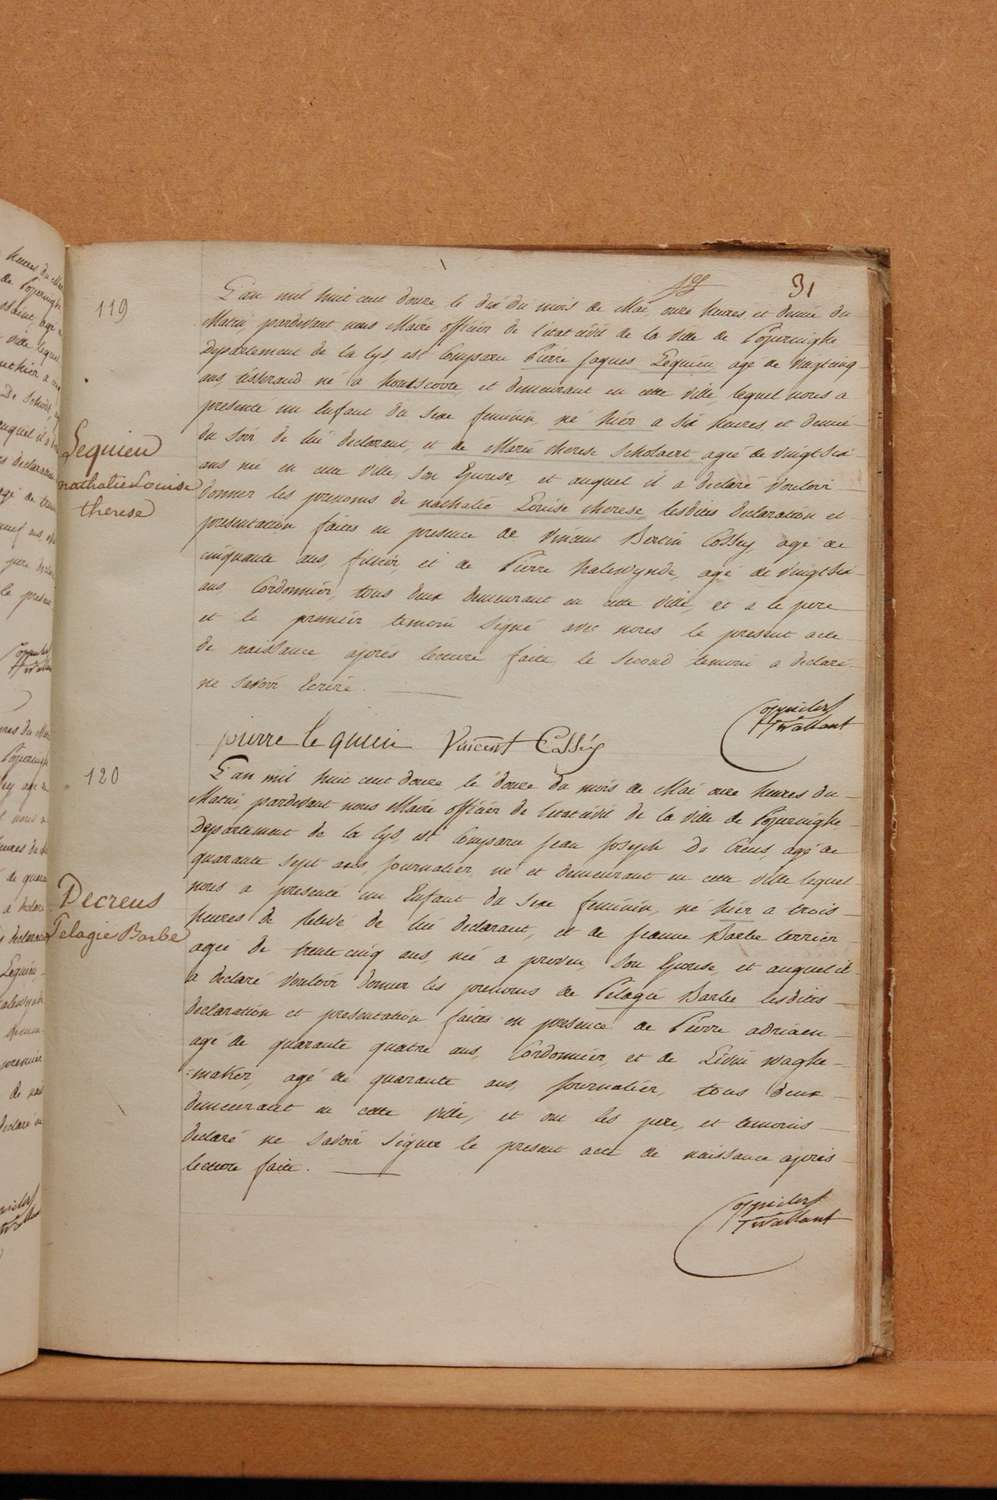 31
119
L'an mil huit cent douze le dix du mois de Mai, onze heures et demie du
Matin, pardevant nous Maire officier de l'etat civil de la ville de Poperinghe
Departement de la Lys, est Comparu Pierre Jaques Lequien, agé de Vingtcinq
ans, tisserand né a hontscoote, et demeurant en cette ville lequel nous a
presenté un Enfant du Sexe feminin, né hier a Six heures et demie
du Soir de lui declarant, et de Marie therese Scholaert, agée de vingt six
ans née en cette ville, Son Epouse, et auquel il a declaré Vouloir
donner les prenoms de nathalie Louise therese, lesdites declaration et
presentation faites en presence de Vincent Bertin Cossey agé de
cinquante ans, et de Pierre halewynde, agé de Vingt Six
ans, Cordonnier, tous deux demeurant en cette Ville, et a le pere
et le premier temoin Signé avec nous le present acte
de naissance apres lecture faite, le Second temoin a declaré
ne Savoir Ecrire.
Lequien
nathalie Louise
therese
pierre le quien Vincent Cossey
120
L'an mil huit cent douze le douze du mois de Mai onze heures du
Matin, pardevant nous Maire officier de l'etat civil de la ville de Poperinghe
Departement de la Lys, est Comparu Jean Joseph De Creus, agé de
quarante Sept ans Journalier, né et demeurant en cette Ville lequel
nous a presenté un Enfant du Sexe feminin, né hier a trois
heures de relevé de lui Declarant, et de Jeanne Barbe terrier
agée de trente cinq ans, née a proven, Son Epouse, et auquel il
a declaré vouloir donner les prenoms de Pelagie Barbe lesdites
declaration et presentation faites en presence de Pierre adriaen
agé de quarante quatre ans, Cordonnier, et de Livin waghe-
maker, agé de quarante ans, Journalier, tous deux
demeurant en cette ville, et ont les pere, et temoins
declaré ne Savoir Signer le present acte de naissance apres
lecture faite.
Decreus
Pelagie Barbe